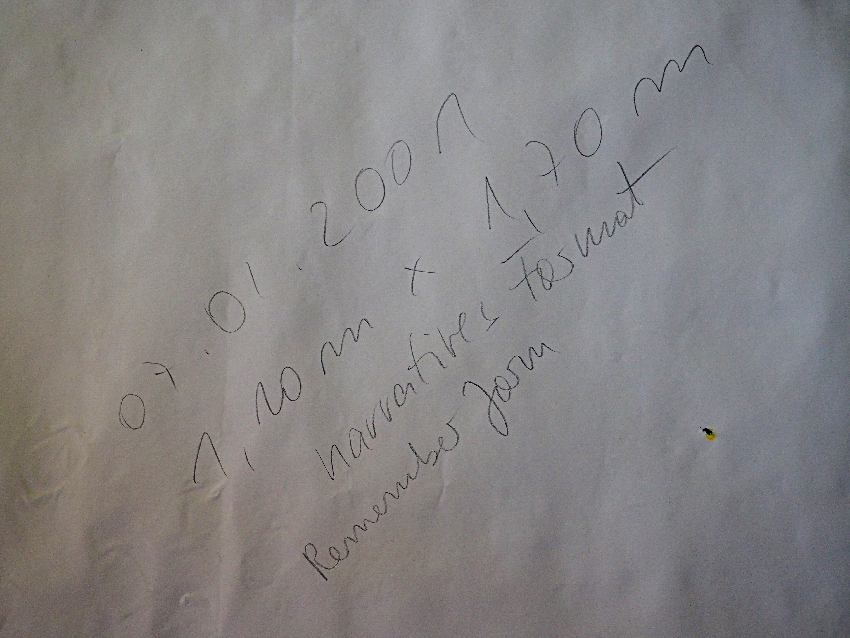 07.01.2001
1,10 m x 1,70 m
narratives Format
Remember Jorn